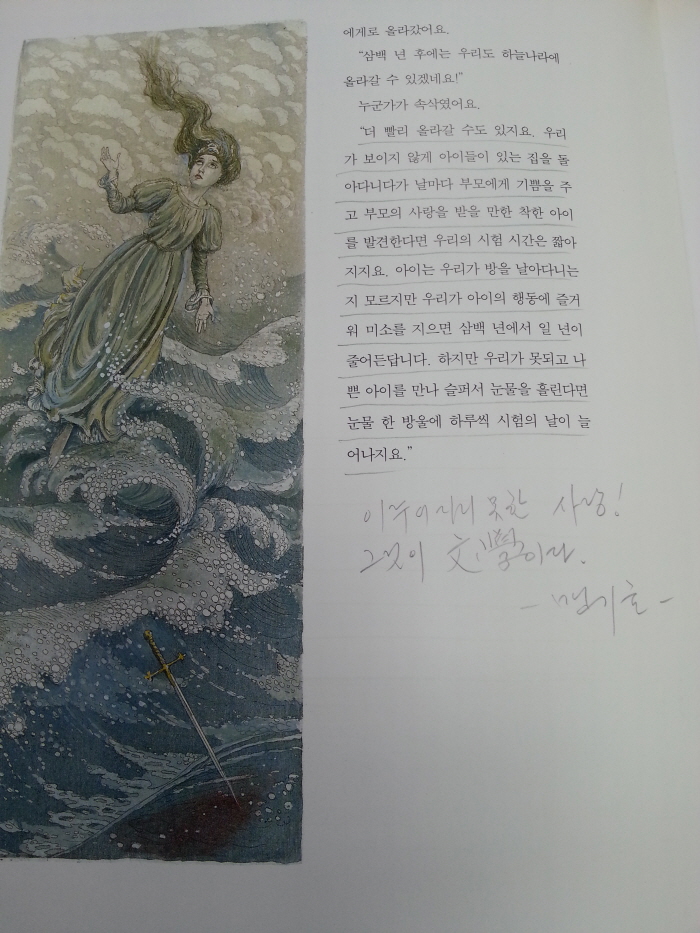 에게로 올라갔어요.
“삼백 년 후에는 우리도 하늘나라에
올라갈 수 있겠네요!”
누군가가 속삭였어요.
“더 빨리 올라갈 수도 있지요. 우리
가 보이지 않게 아이들이 있는 집을 돌
아다니다가 날마다 부모에게 기쁨을 주
고 부모의 사랑을 받을 만한 착한 아이
를 발견한다면 우리의 시험 시간은 짧아
지지요. 아이는 우리가 방을 날아다니는
지 모르지만 우리가 아이의 행동에 즐거
워 미소를 지으면 삼백 년에서 일 년이
줄어든답니다. 하지만 우리가 못되고 나
쁜 아이를 만나 슬퍼서 눈물을 흘린다면
눈물 한 방울에 하루씩 시험의 날이 늘
어나지요.”
이루어지지 못한 사랑!
그것이 文學이다.